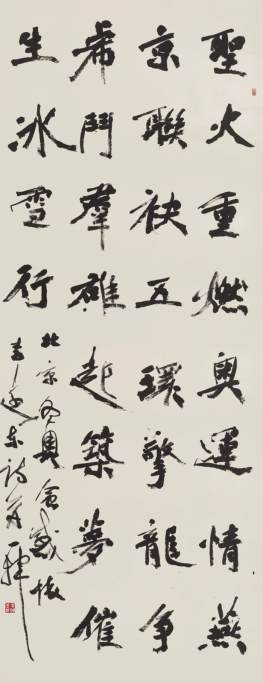 聖火重燃奧運情燕
京聯袂五環擎龍争
虎鬥羣雄起築夢催
生冰雪行
北京冬奧會感懷